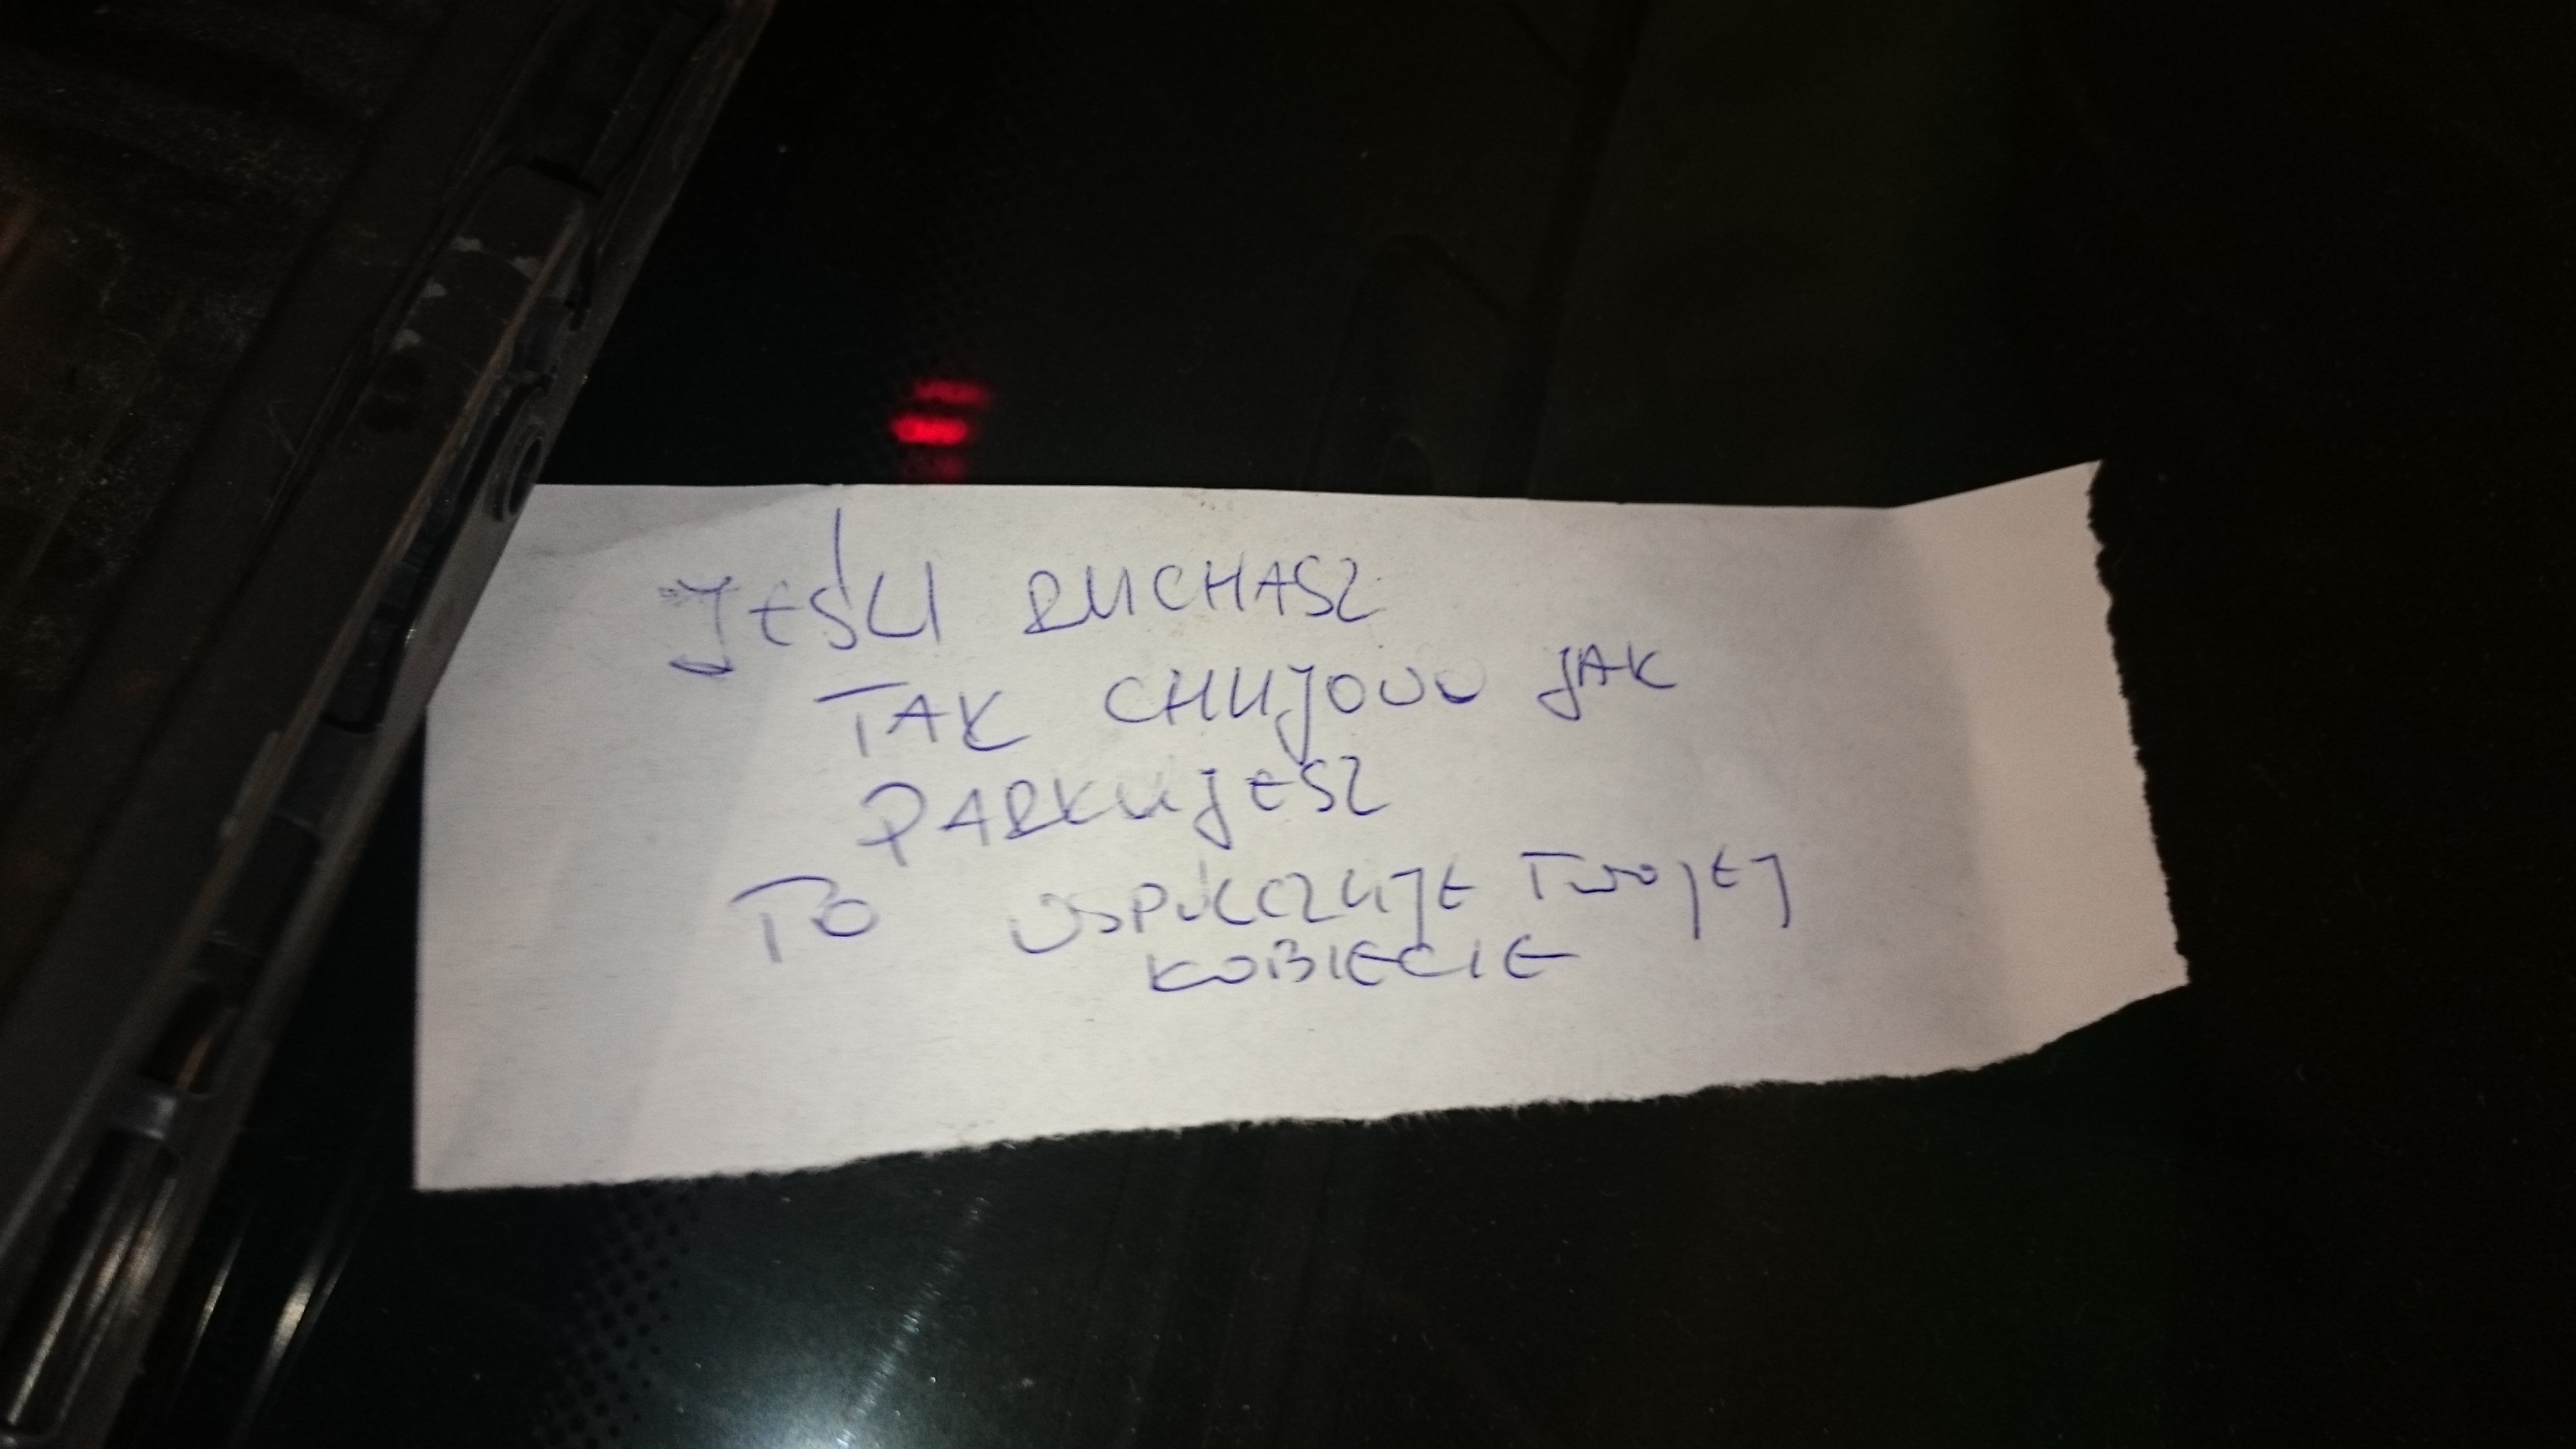 JEŚLI RUCHASZ
TAK CHUJOWO JAK
PARKUJESZ
TO WSPÓŁCZUJE TWOJEJ
KOBIECIE